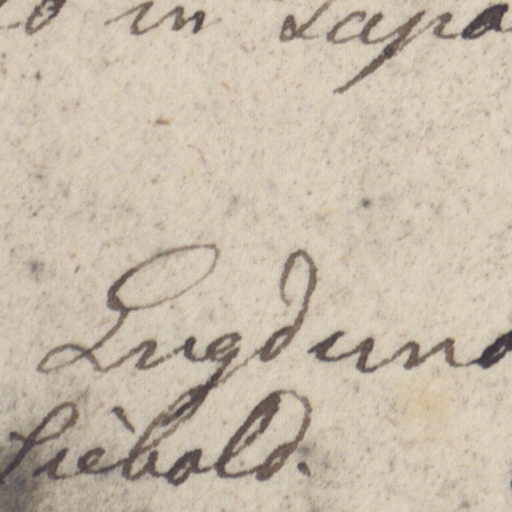 in Japo
Lugduno
Siebold.